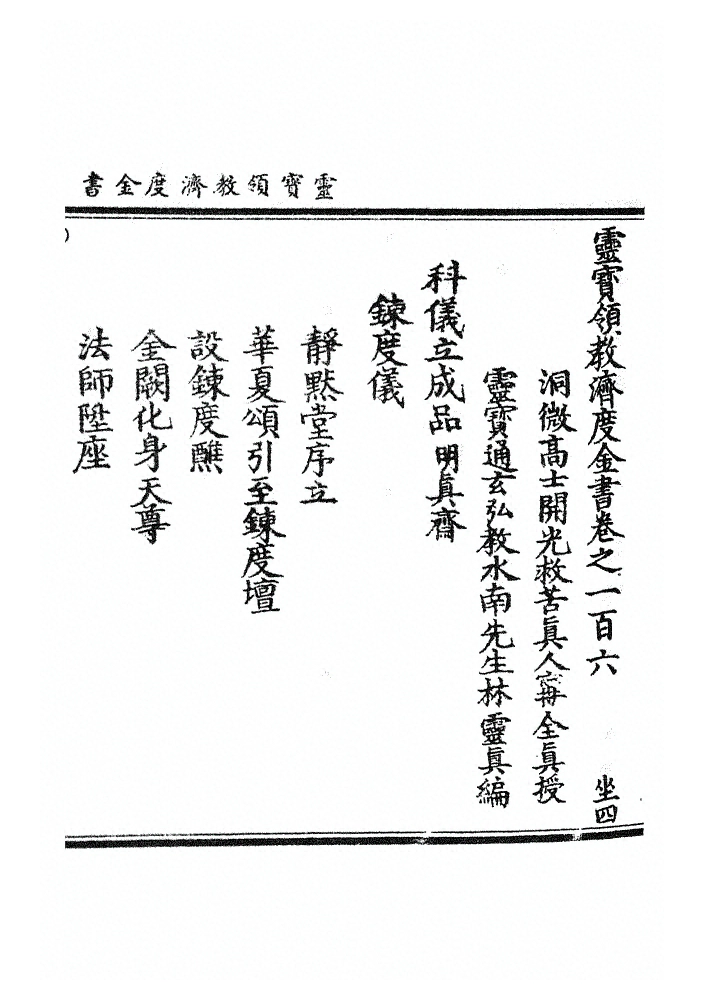 靈寶領教濟度金書
靈寶領教濟度金書卷之一百六 坐四
洞微高士開光救苦眞人甯全眞授
靈寶通玄弘教水南先生林靈眞編
科儀立成品 明眞齋
鍊度儀
靜默堂序立
華夏頌引至鍊度壇
設鍊度醮
金闕化身天尊
法師陞座